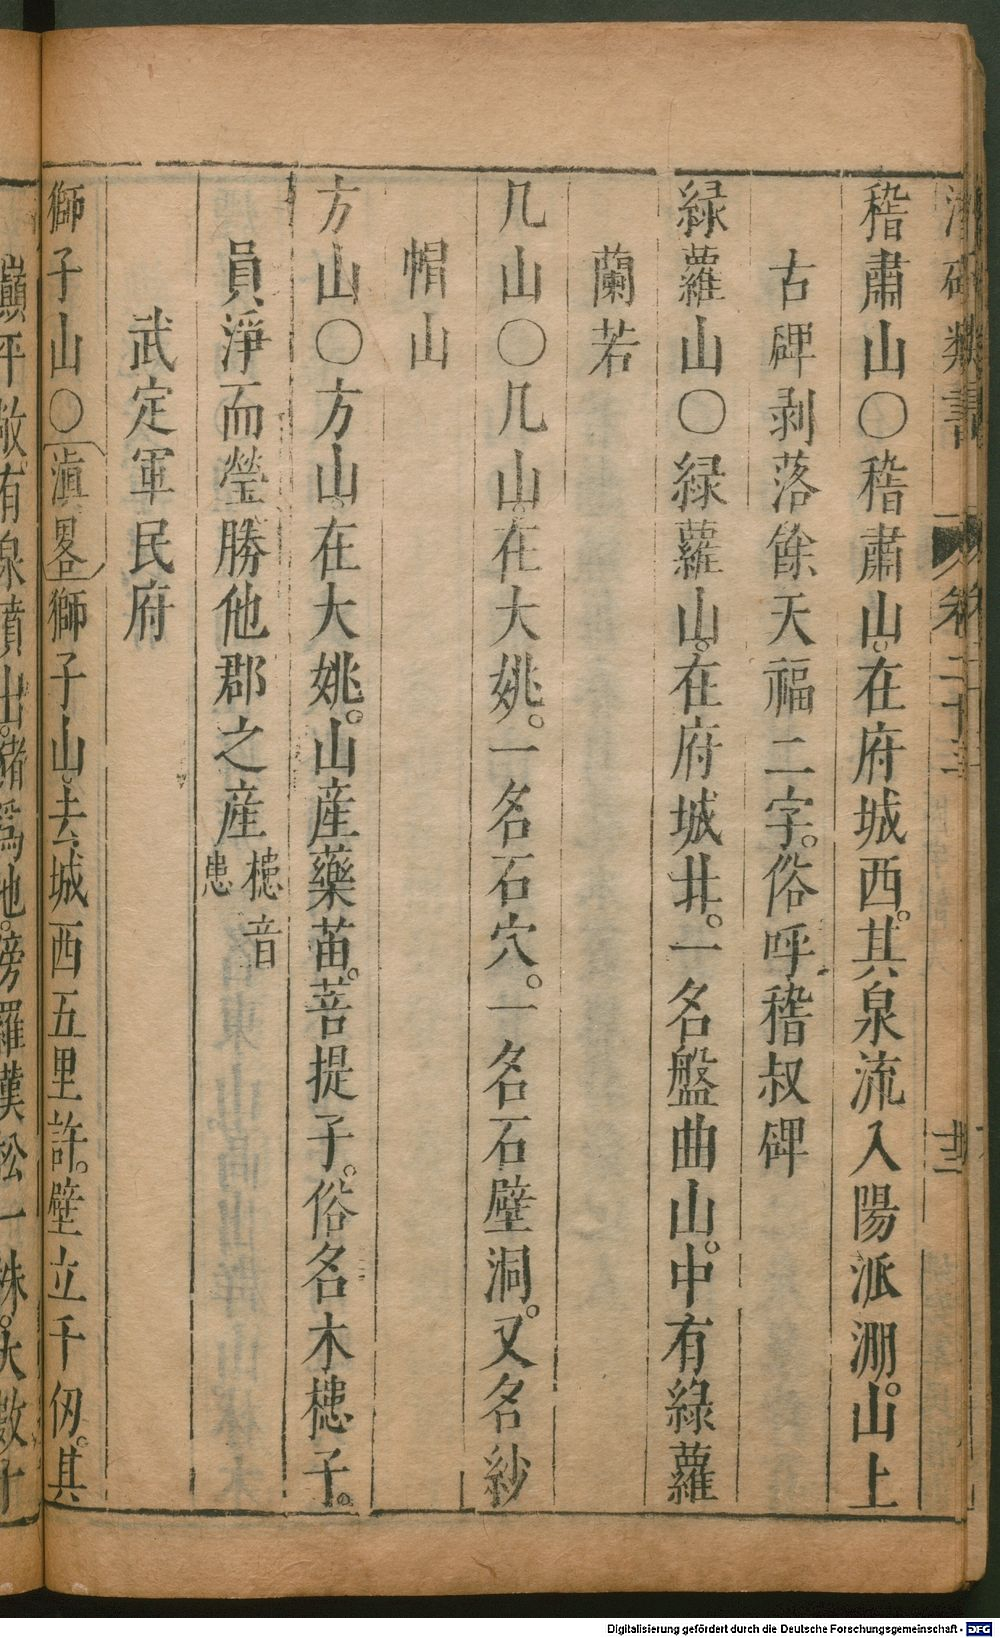 潛確類書 卷二十三 廿三
稽肅山○稽肅山。在府城西。其泉流入陽派淜。山上
古碑剥落。餘天福二字。俗呼稽叔碑
緑蘿山○緑蘿山。在府城北。一名盤曲山。中有綠蘿
蘭若
几山○几山。在大姚。一名石穴。一名石壁洞。又名紗
帽山
方山○方山。在大姚。山産藥苗。菩提子。俗名木槵子。
員淨而瑩勝他郡之産 槵音患
武定軍民府
獅子山○滇畧獅子山。去城西五里許。壁立千仞。其
巔平敞。有泉噴出。豬爲池。傍羅漢松一株。大數十
Digitalisierung gefördert durch die Deutsche Forschungsgemeinschaft - DFG